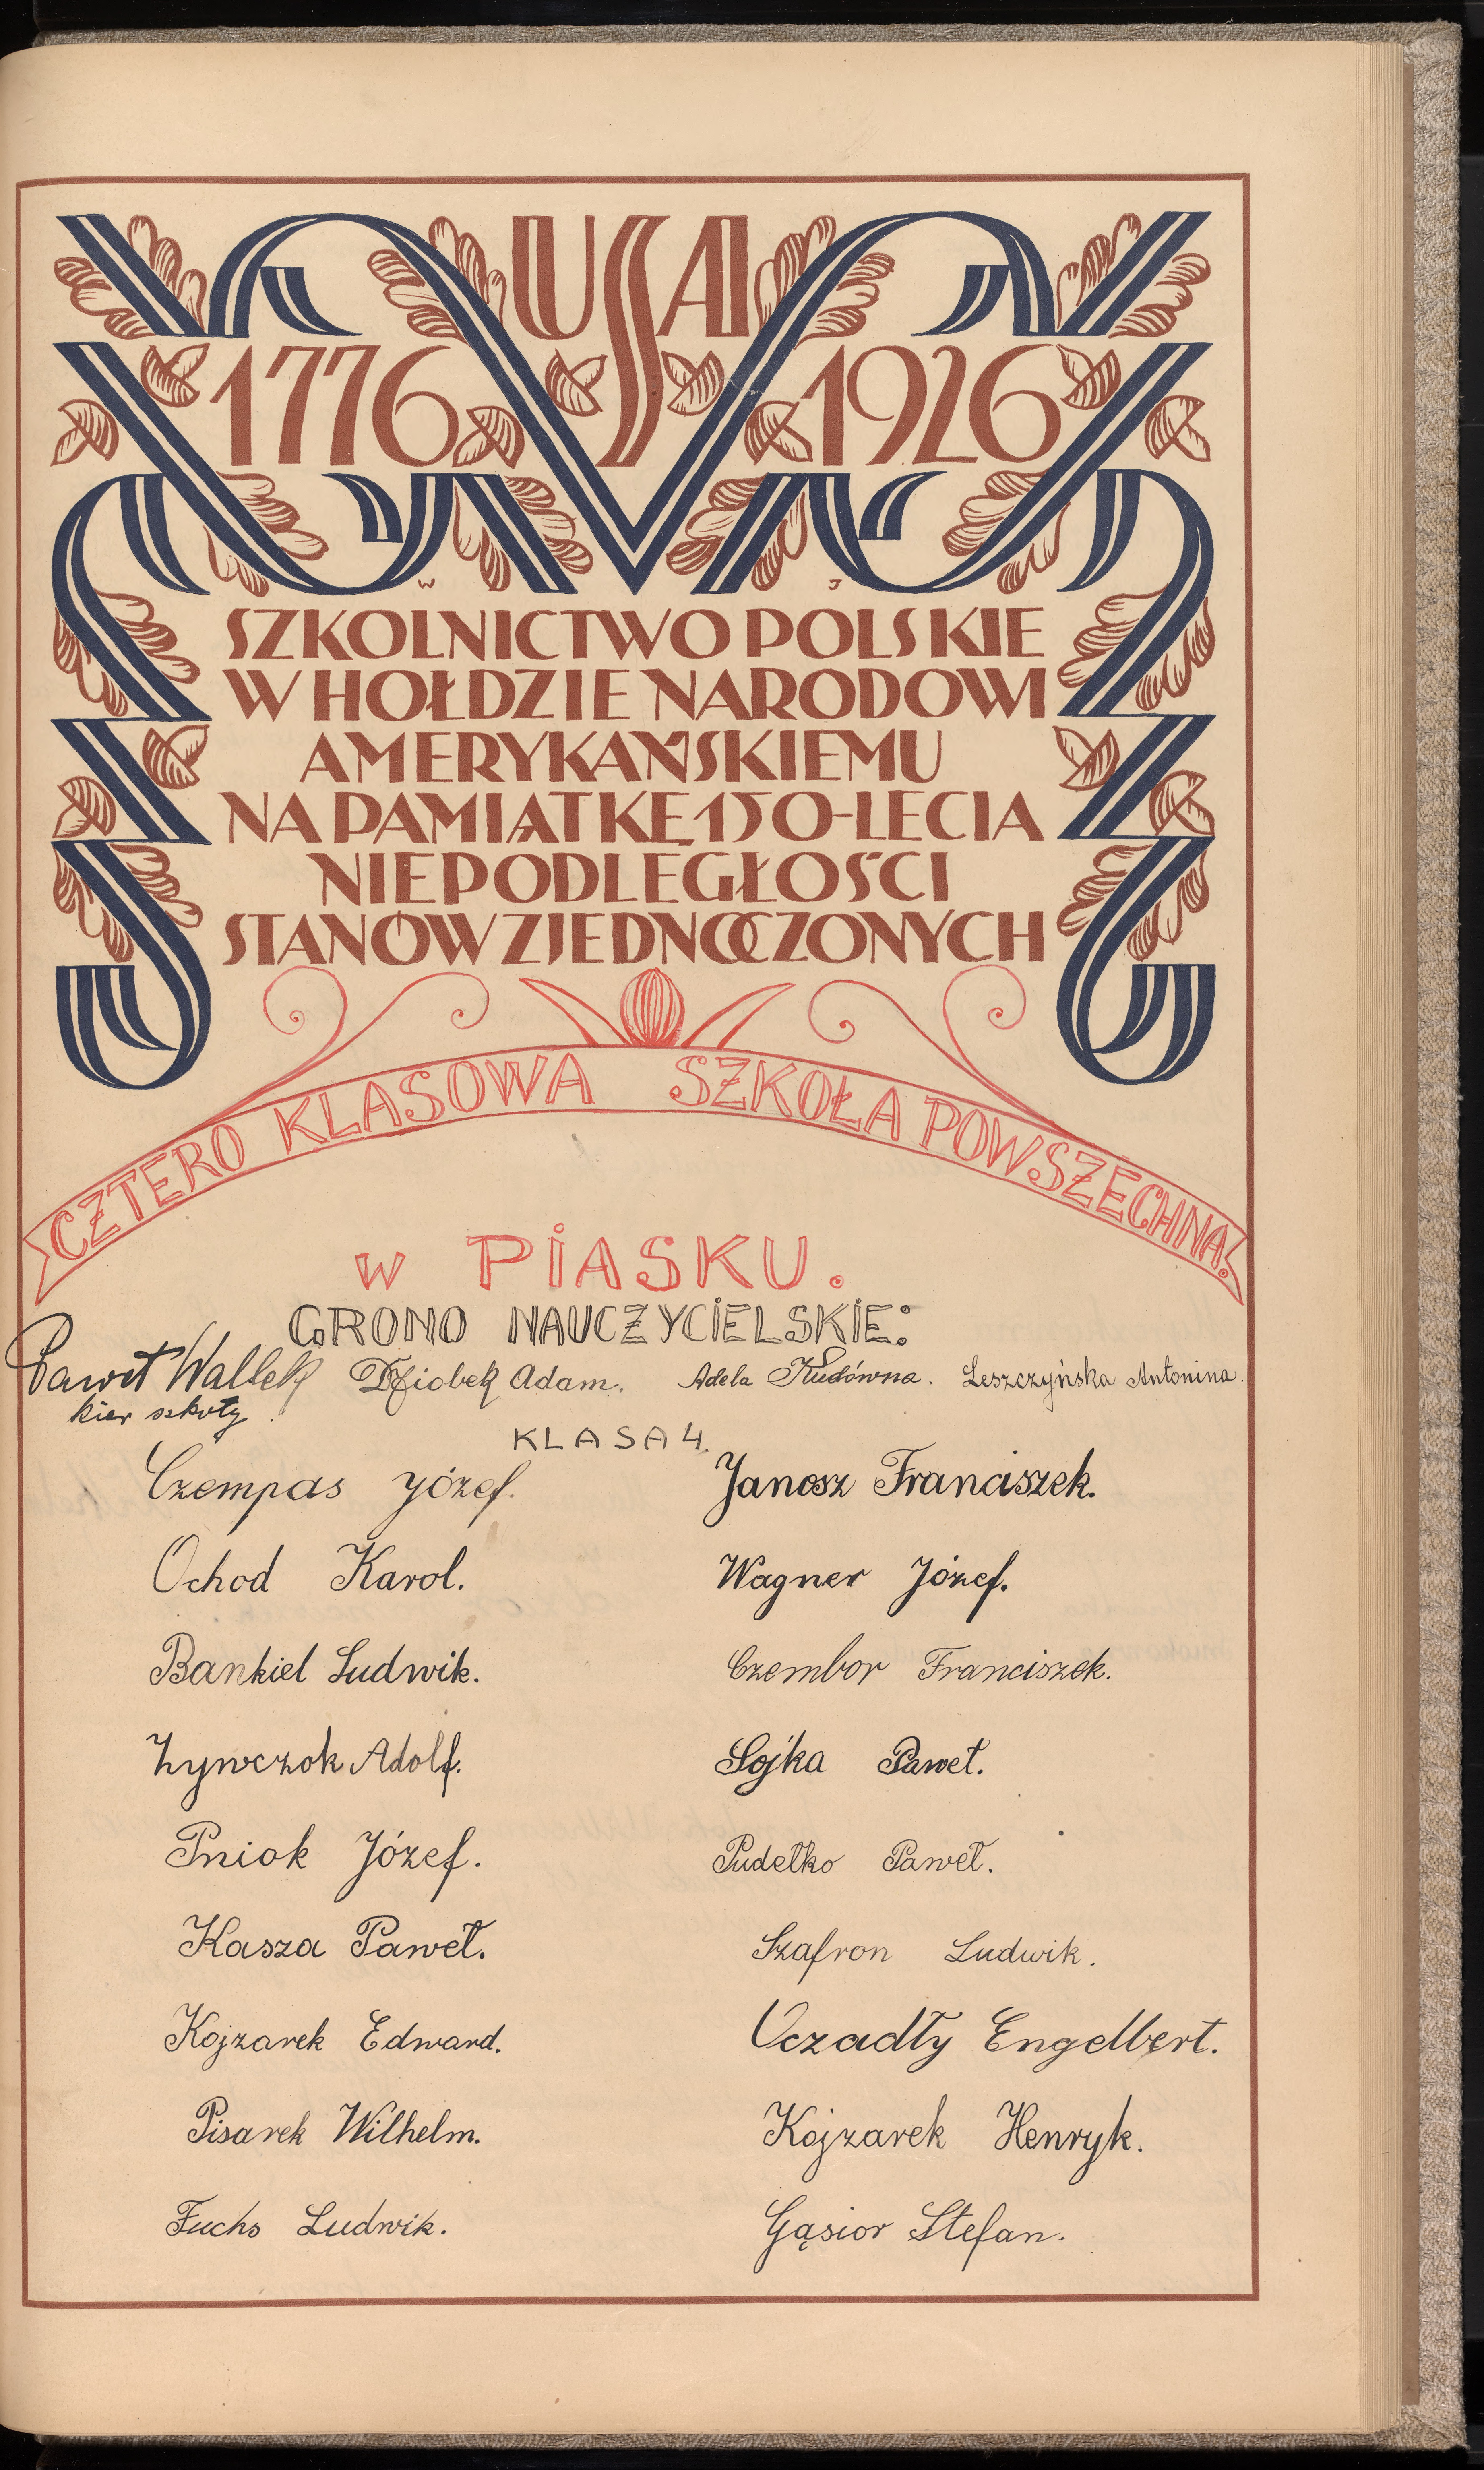 USA
1776 1926
W J
SZKOLNICTWO POLSKIE
W HOŁDZIE NARODOWI
AMERYKAŃSKIEMU
NA PAMIĄTKĘ 150-LECIA
NIEPODLEGŁOŚCI
STANÓW ZJEDNOCZONYCH
CZTERO KLASOWA SZKOŁA POWSZECHNA!
w PIASKU.
GRONO NAUCZYCIELSKIE:
Paweł Wallek Dziobek Adam. Adela Leszczyńska Antonina.
kier szkoły.
KLASA 4.
Czempas Józef. Janosz Franciszek.
Ochod Karol. Wagner Józef.
Bankiel Ludwik. Czembor Franciszek.
Żywczok Adolf. Sojka Paweł.
Pniok Józef. Pudełko Paweł.
Kasza Paweł. Szafron Ludwik.
Kojzarek Edward. Uczadły Engelbert.
Pisarek Wilhelm. Kojzarek Henryk.
Fuchs Ludwik. Gąsior Stefan.